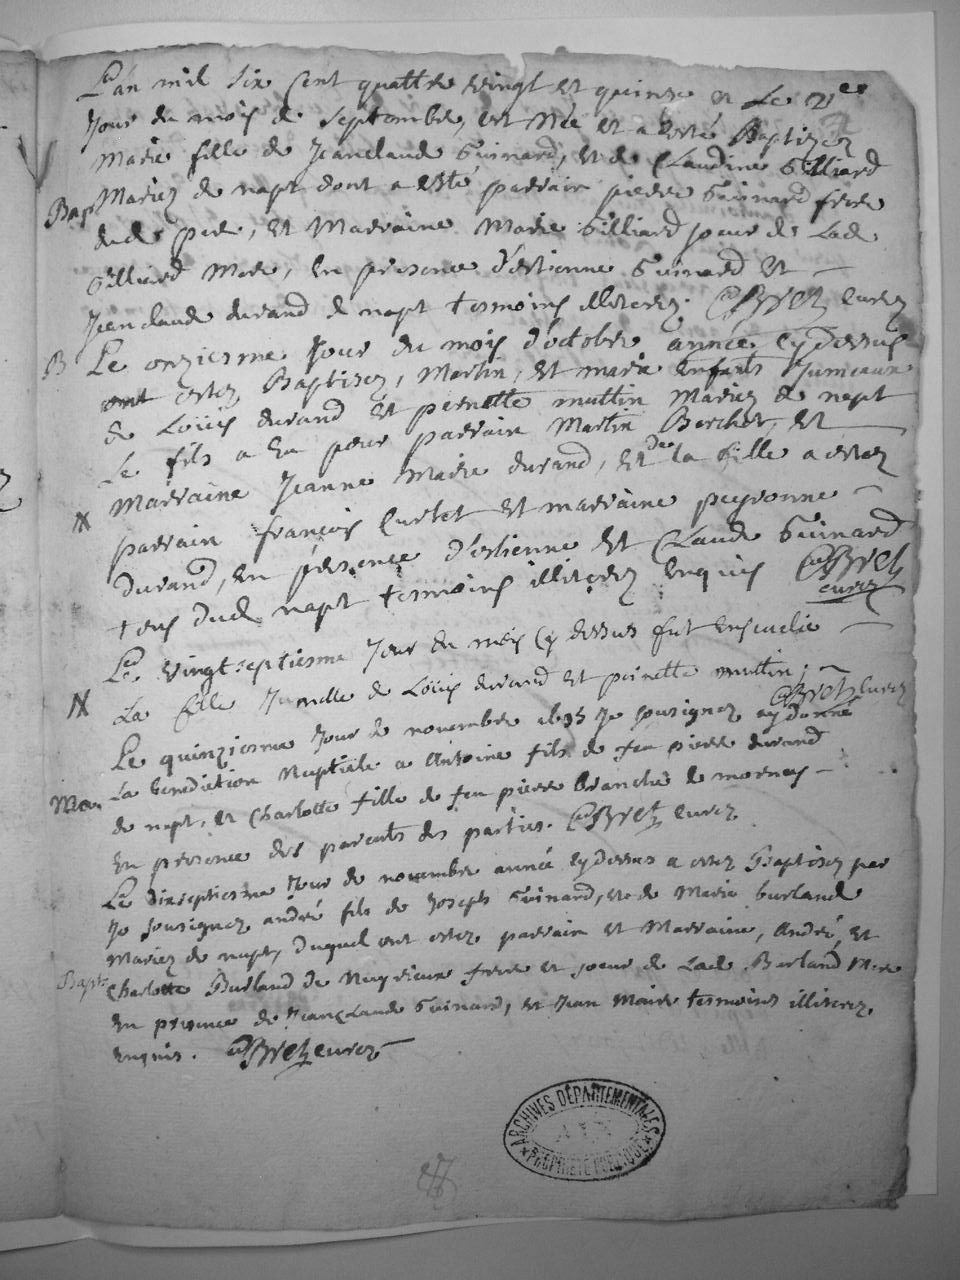 L'an mil six cent quattre vingt et quinze et Le 21es
Jour du mois de septembre, est Née et a esté Baptizez
Marie fille de Jeanclaude Guinard, et de Claudine Gilliard
Bap Mariez de napt dont a esté parrain pierre Guinard frere
dud. pere, et Marraine Marie Gilliard soeur de Lad.
Gilliard Mere, En presence d'estienne Guinard et
Jeanclaude durand de napt tesmoins illiterez. Bret curez
B Le onziesme Jour du mois d'octobre année cy dessus
ont estez Baptisez, Martin, et marie enfants Jumeaux
de Loüis durand et pernette muttin Mariez de napt
Le fils a eu pour parrain Martin Berchet, et
Marraine Jeanne Marie durand, et de la fille a estez
parrain françois Curtet et marraine peyronne
durand, en presence d'estienne et Claude Guinard
tous dud. napt tesmoins illiterez enquis Bret
curez
Le vingt septiesme Jour du mois cy dessus fut ensevelie
La fille Jumelle de Loüis durand et pernette muttin. Bret curez
Le quinziesme Jour de novembre 1695 Je sousignez ay donné
La benediction Nuptiale a Antoine fils de feu pierre durand
Mar
de napt, et Charlotte fille de feu pierre branche de mornay
En presence des parents des parties. Bret curez
Le dixseptiesme Jour de novembre année cy dessus a estez Baptisez par
Je sousignez andré fils de Joseph Guinard, et de Marie burland
Mariez de napt, duquel ont estez parrain et Marraine, André, et
Bapt Charlotte Burland de frere et soeur de Lad. Burland Mere
En presence de Jeanclaude Guinard, et Jean Maire tesmoins illiterez
enquis. Bret curez
ARCHIVES DÉPARTEMENTALES
AIN
PROPRIÉTÉ PUBLIQUE